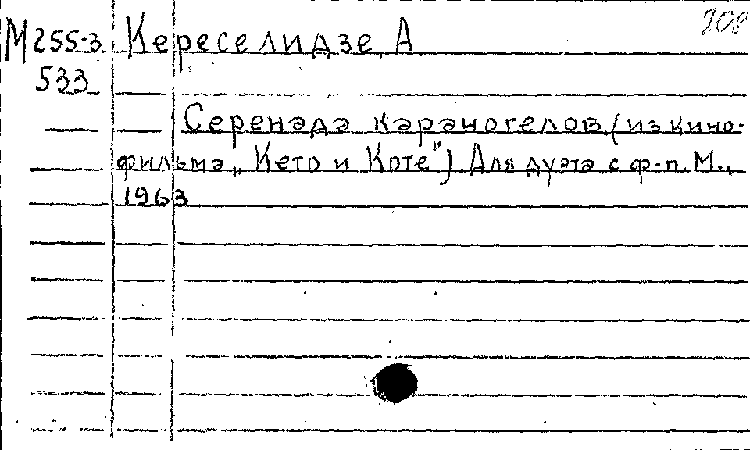 208
М 255-3 Кереселидзе, А
533
Серенада карачогелов (из кино-
фильма „Кето и Коте"). Для дуэта с ф-п. М.,
1963